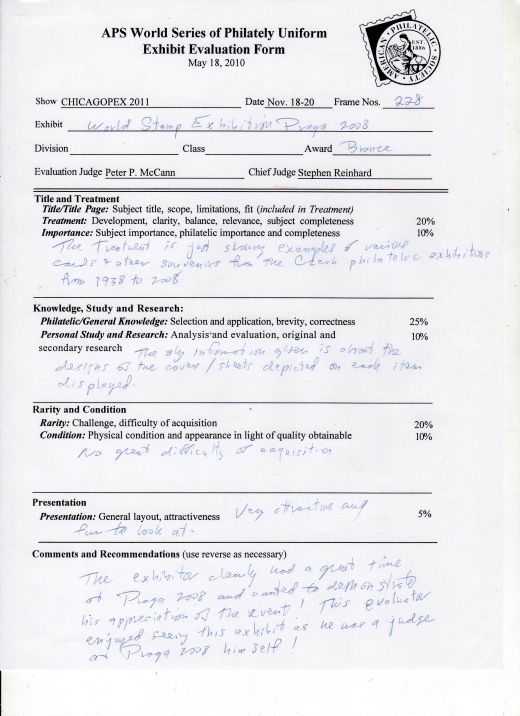 APS World Series of Philately Uniform
Exhibit Evaluation Form
May 18, 2010
AMERICAN PHILATELIC SOCIETY
EST. 1886
Show CHICAGOPEX 2011 Date Nov. 18-20 Frame Nos. 228
Exhibit World Stamp Exhibition Praga 2008
Division Class Award Bronze
Evaluation Judge Peter P. McCann Chief Judge Stephen Reinhard
Title and Treatment
Title/Title Page: Subject title, scope, limitations, fit (included in Treatment)
Treatment: Development, clarity, balance, relevance, subject completeness 20%
Importance: Subject importance, philatelic importance and completeness 10%
The Treatment is just showing examples of various
cards & other souvenirs from the Czech philatelic exhibitions
from 1938 to 2008
Knowledge, Study and Research:
Philatelic/General Knowledge: Selection and application, brevity, correctness 25%
Personal Study and Research: Analysis and evaluation, original and 10%
secondary research The only information given is about the
designs of the covers / sheets depicted on each item
displayed.
Rarity and Condition
Rarity: Challenge, difficulty of acquisition 20%
Condition: Physical condition and appearance in light of quality obtainable 10%
No great difficulty of acquisition
Presentation
Presentation: General layout, attractiveness Very attractive and 5%
fun to look at.
Comments and Recommendations (use reverse as necessary)
The exhibitor clearly had a great time
at Praga 2008 and wanted to demonstrate
his appreciation of the event! This evaluator
enjoyed seeing this exhibit as he was a judge
at Praga 2008 himself!